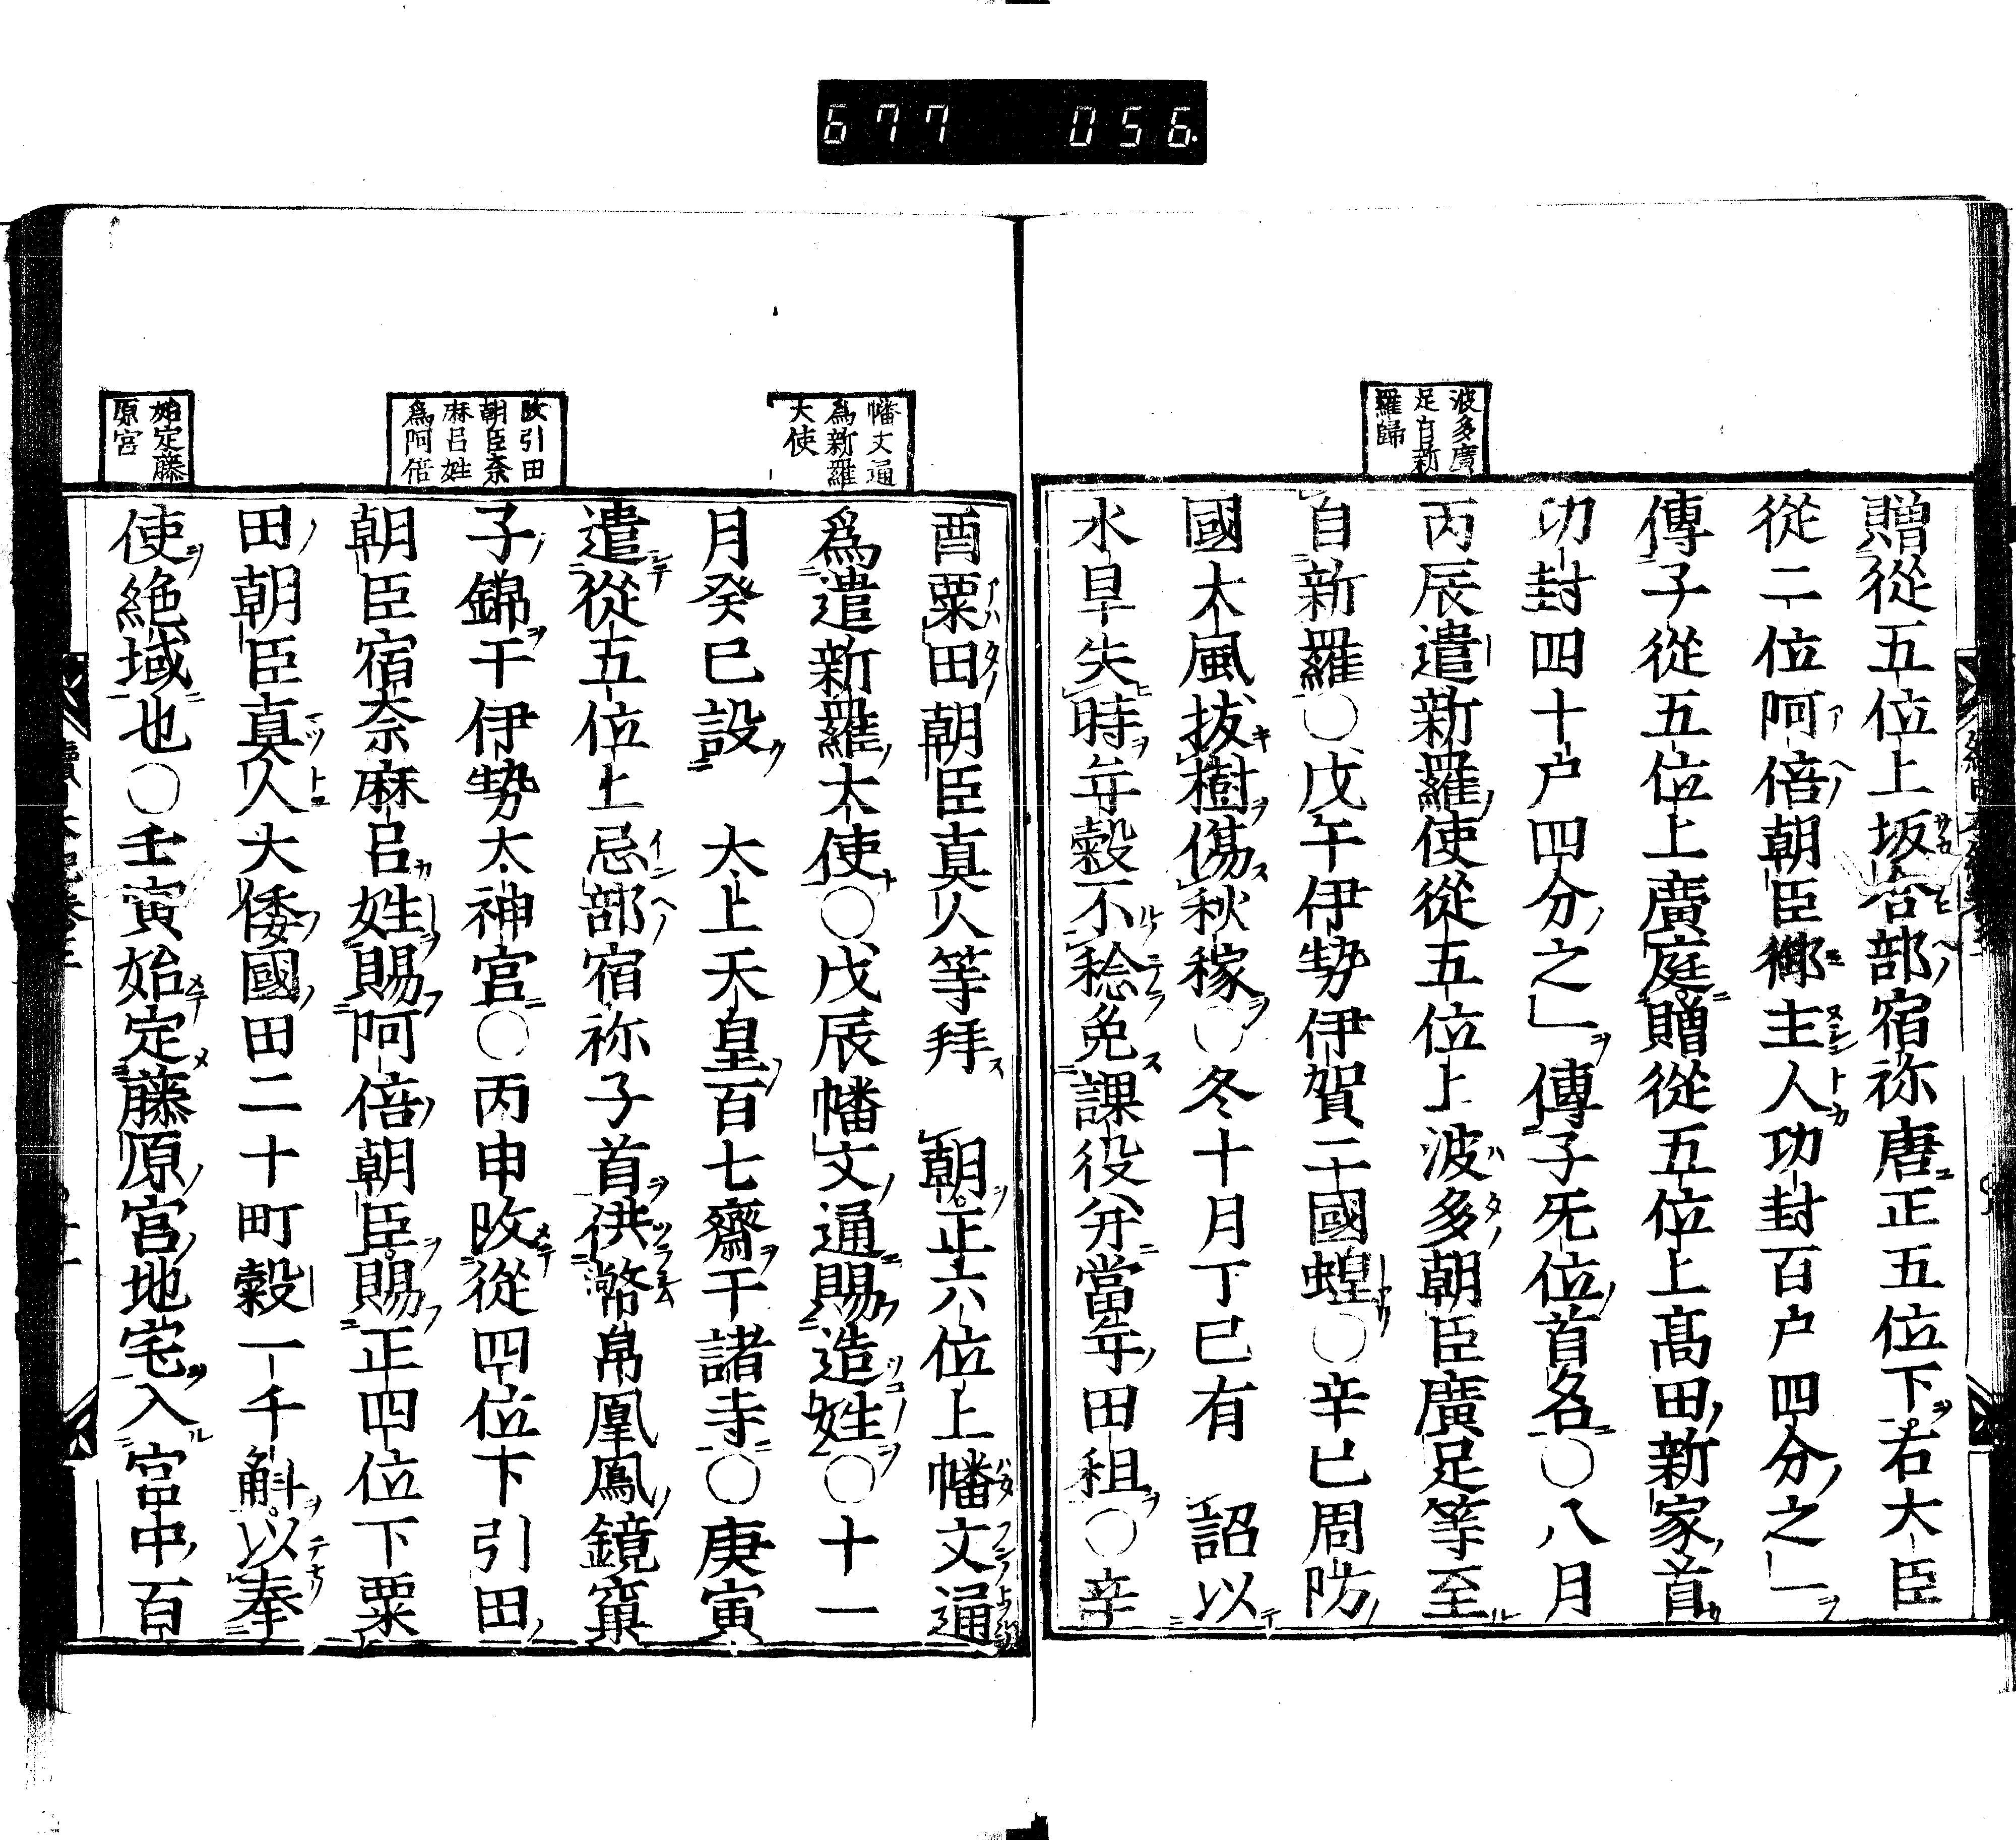 677 056
波多廣
足自新
羅歸
贈從五位上坂合部宿祢唐正五位下右大臣
從二位阿倍朝臣御主人功封百户四分之一
傳子從五位上廣庭贈從五位上髙田新家首
功封四十户四分之一傳子旡位首名〇八月
丙辰遣新羅使從五位上波多朝臣廣足等至
自新羅〇戊午伊勢伊賀二國蝗〇辛巳周防
國大風拔樹傷秋稼〇冬十月丁巳有詔以
水旱失時年穀不稔免課役并當年田租〇辛
幡文通
爲新羅
大使
改引田
朝臣奈
麻呂姓
爲阿倍
始定藤
原宮
酉粟田朝臣真人等拜朝正六位上幡文通
爲遣新羅大使〇戊辰幡文通賜造姓〇十一
月癸巳設太上天皇百七齋于諸寺〇庚寅
遣從五位上忌部宿祢子首供幣帛凰鳳鏡窠
子錦于伊勢太神宮〇丙申改從四位下引田
朝臣宿奈麻呂姓賜阿倍朝臣賜正四位下粟
田朝臣真人大倭國田二十町穀一千斛以奉
使絶域也〇壬寅始定藤原宮地宅入宮中百